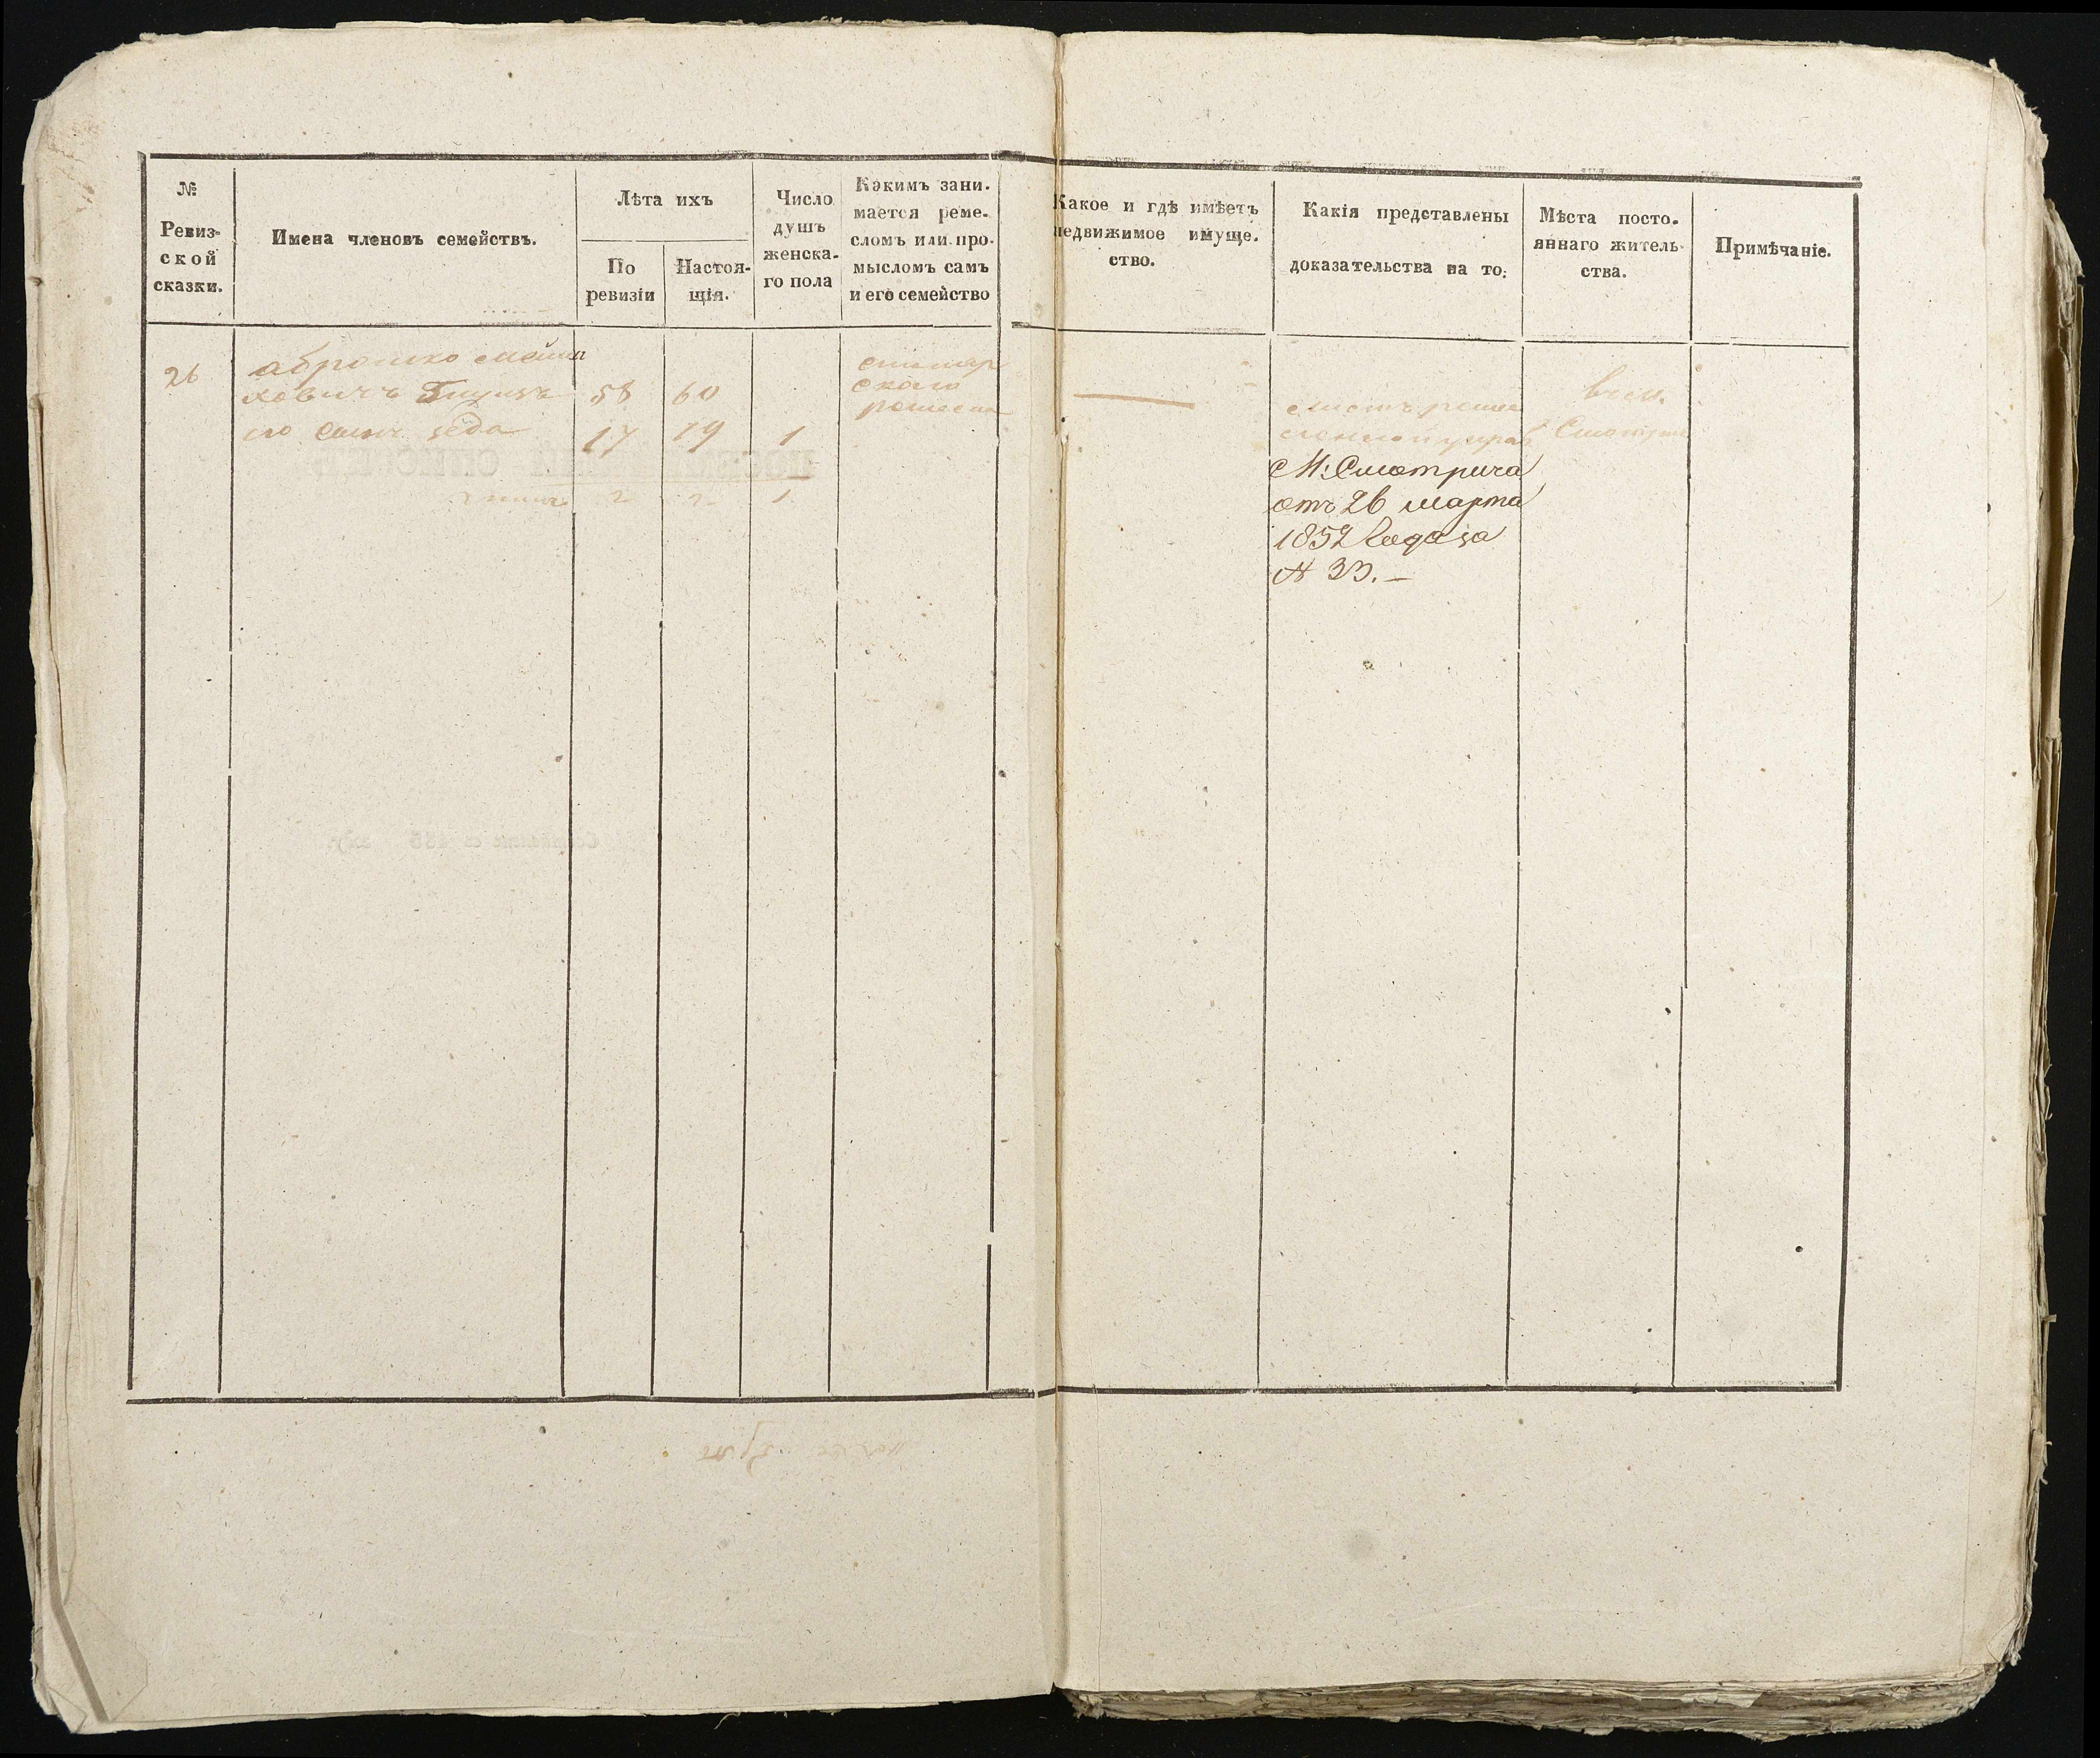 №
Ревиз-
ской
сказки.
Имена членовъ семействъ.
Лѣта ихъ
По
ревизіи
Настоя-
щія.
Число
душъ
женска-
го пола
Какимъ зани-
мается реме-
сломъ или про-
мысломъ самъ
и его семейство
Какое и гдѣ имѣетъ
недвижимое имуще-
ство.
Какія представлены
доказательства на то:
Мѣста посто-
яннаго житель-
ства.
Примѣчаніе.
26
аброшко
ховичъ
58
60
его сынъ
17
19
1
2
2
1
ского
М: Смотрича
отъ 26 марта
1852 года за
№ 33. —
въ м.